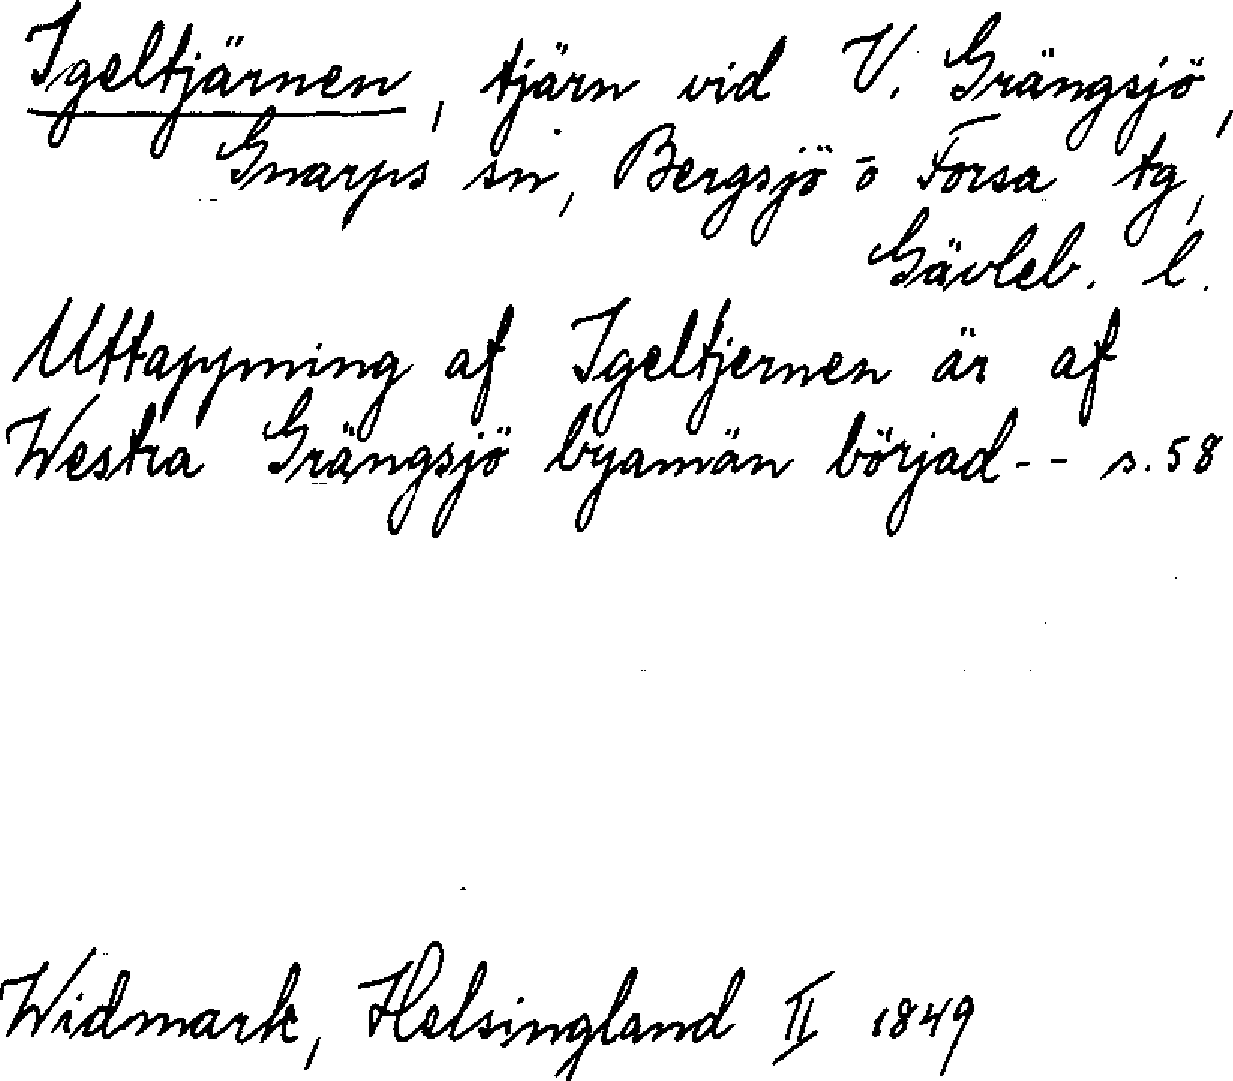 Igeltjärnen, tjärn vid V. Grängsjö,
Gnarps sn, Bergsjö o Forsa tg,
Gävleb. l.
Uttappning af Igeltjernen är af
Westra Grängsjö byamän börjad-- s. 58
Widmark, Helsingland II 1849